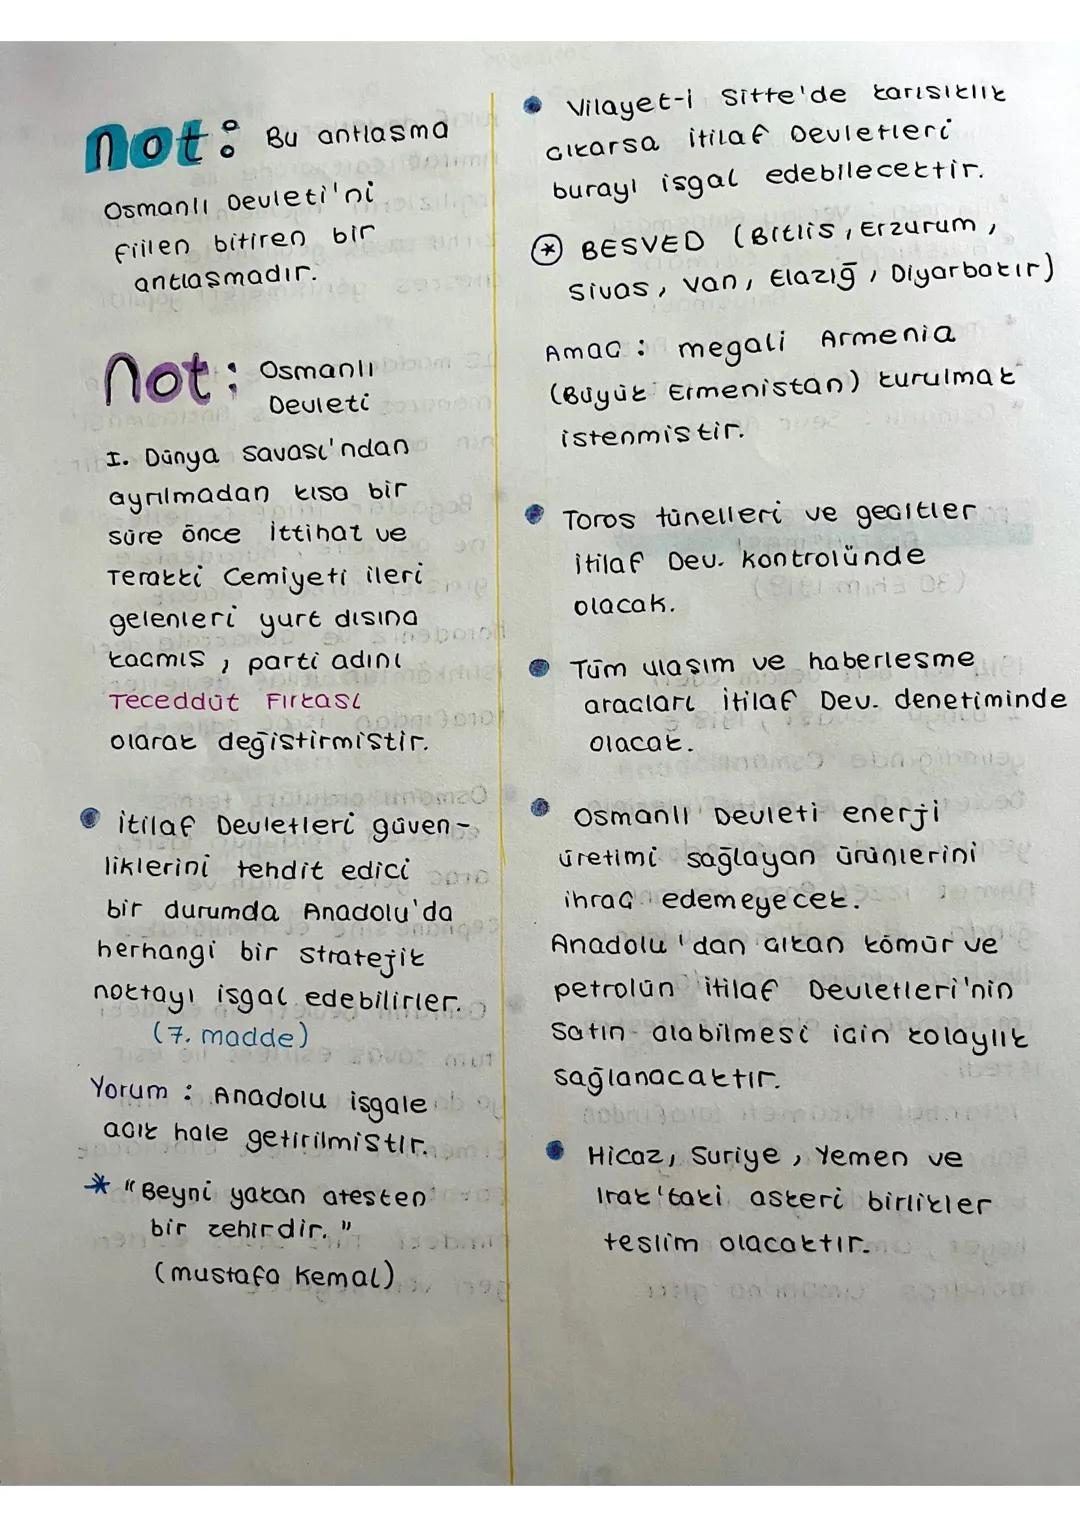 not: Bu antlasma
Osmanlı Devleti'ni
fiilen bitiren bir
antlaşmadır.
not: Osmanlı
Devleti
I. Dünya savası'ndan
ayrılmadan kısa bir
süre önce İttihat ve
Terakki Cemiyeti ileri
gelenleri yurt dısına
kacmıs, parti adını
Teceddüt Fırkası
olarak değistirmistir.
• itilaf Devletleri güven-
liklerini tehdit edici
bir durumda Anadolu'da
herhangi bir stratejik
noktayı işgal edebilirler.
(7. madde)
Yorum : Anadolu işgale
acık hale getirilmistir.
* "Beyni yakan atesten
bir zehirdir."
(mustafa Kemal)
• Vilayet-i Sitte'de karısıklık
cıkarsa itilaf Devletleri
burayı isgal edebilecektir.
* BESVED (Bitlis, Erzurum,
Sivas, Van, Elazığ, Diyarbakır)
Amac : megali Armenia
(Büyük Ermenistan) kurulmak
istenmistir.
• Toros tünelleri ve gecitler
itilaf Dev. kontrolünde
olacak.
• Tüm ulaşım ve haberlesme
aracları itilaf Dev. denetiminde
olacak.
• Osmanlı Devleti enerji
üretimi sağlayan ürünlerini
ihrac edemeyecek.
Anadolu'dan cıkan kömür ve
petrolün itilaf Devletleri'nin
satın alabilmesi icin kolaylık
sağlanacaktır.
• Hicaz, Suriye, Yemen ve
Irak'taki askeri birlikler
teslim olacaktır.